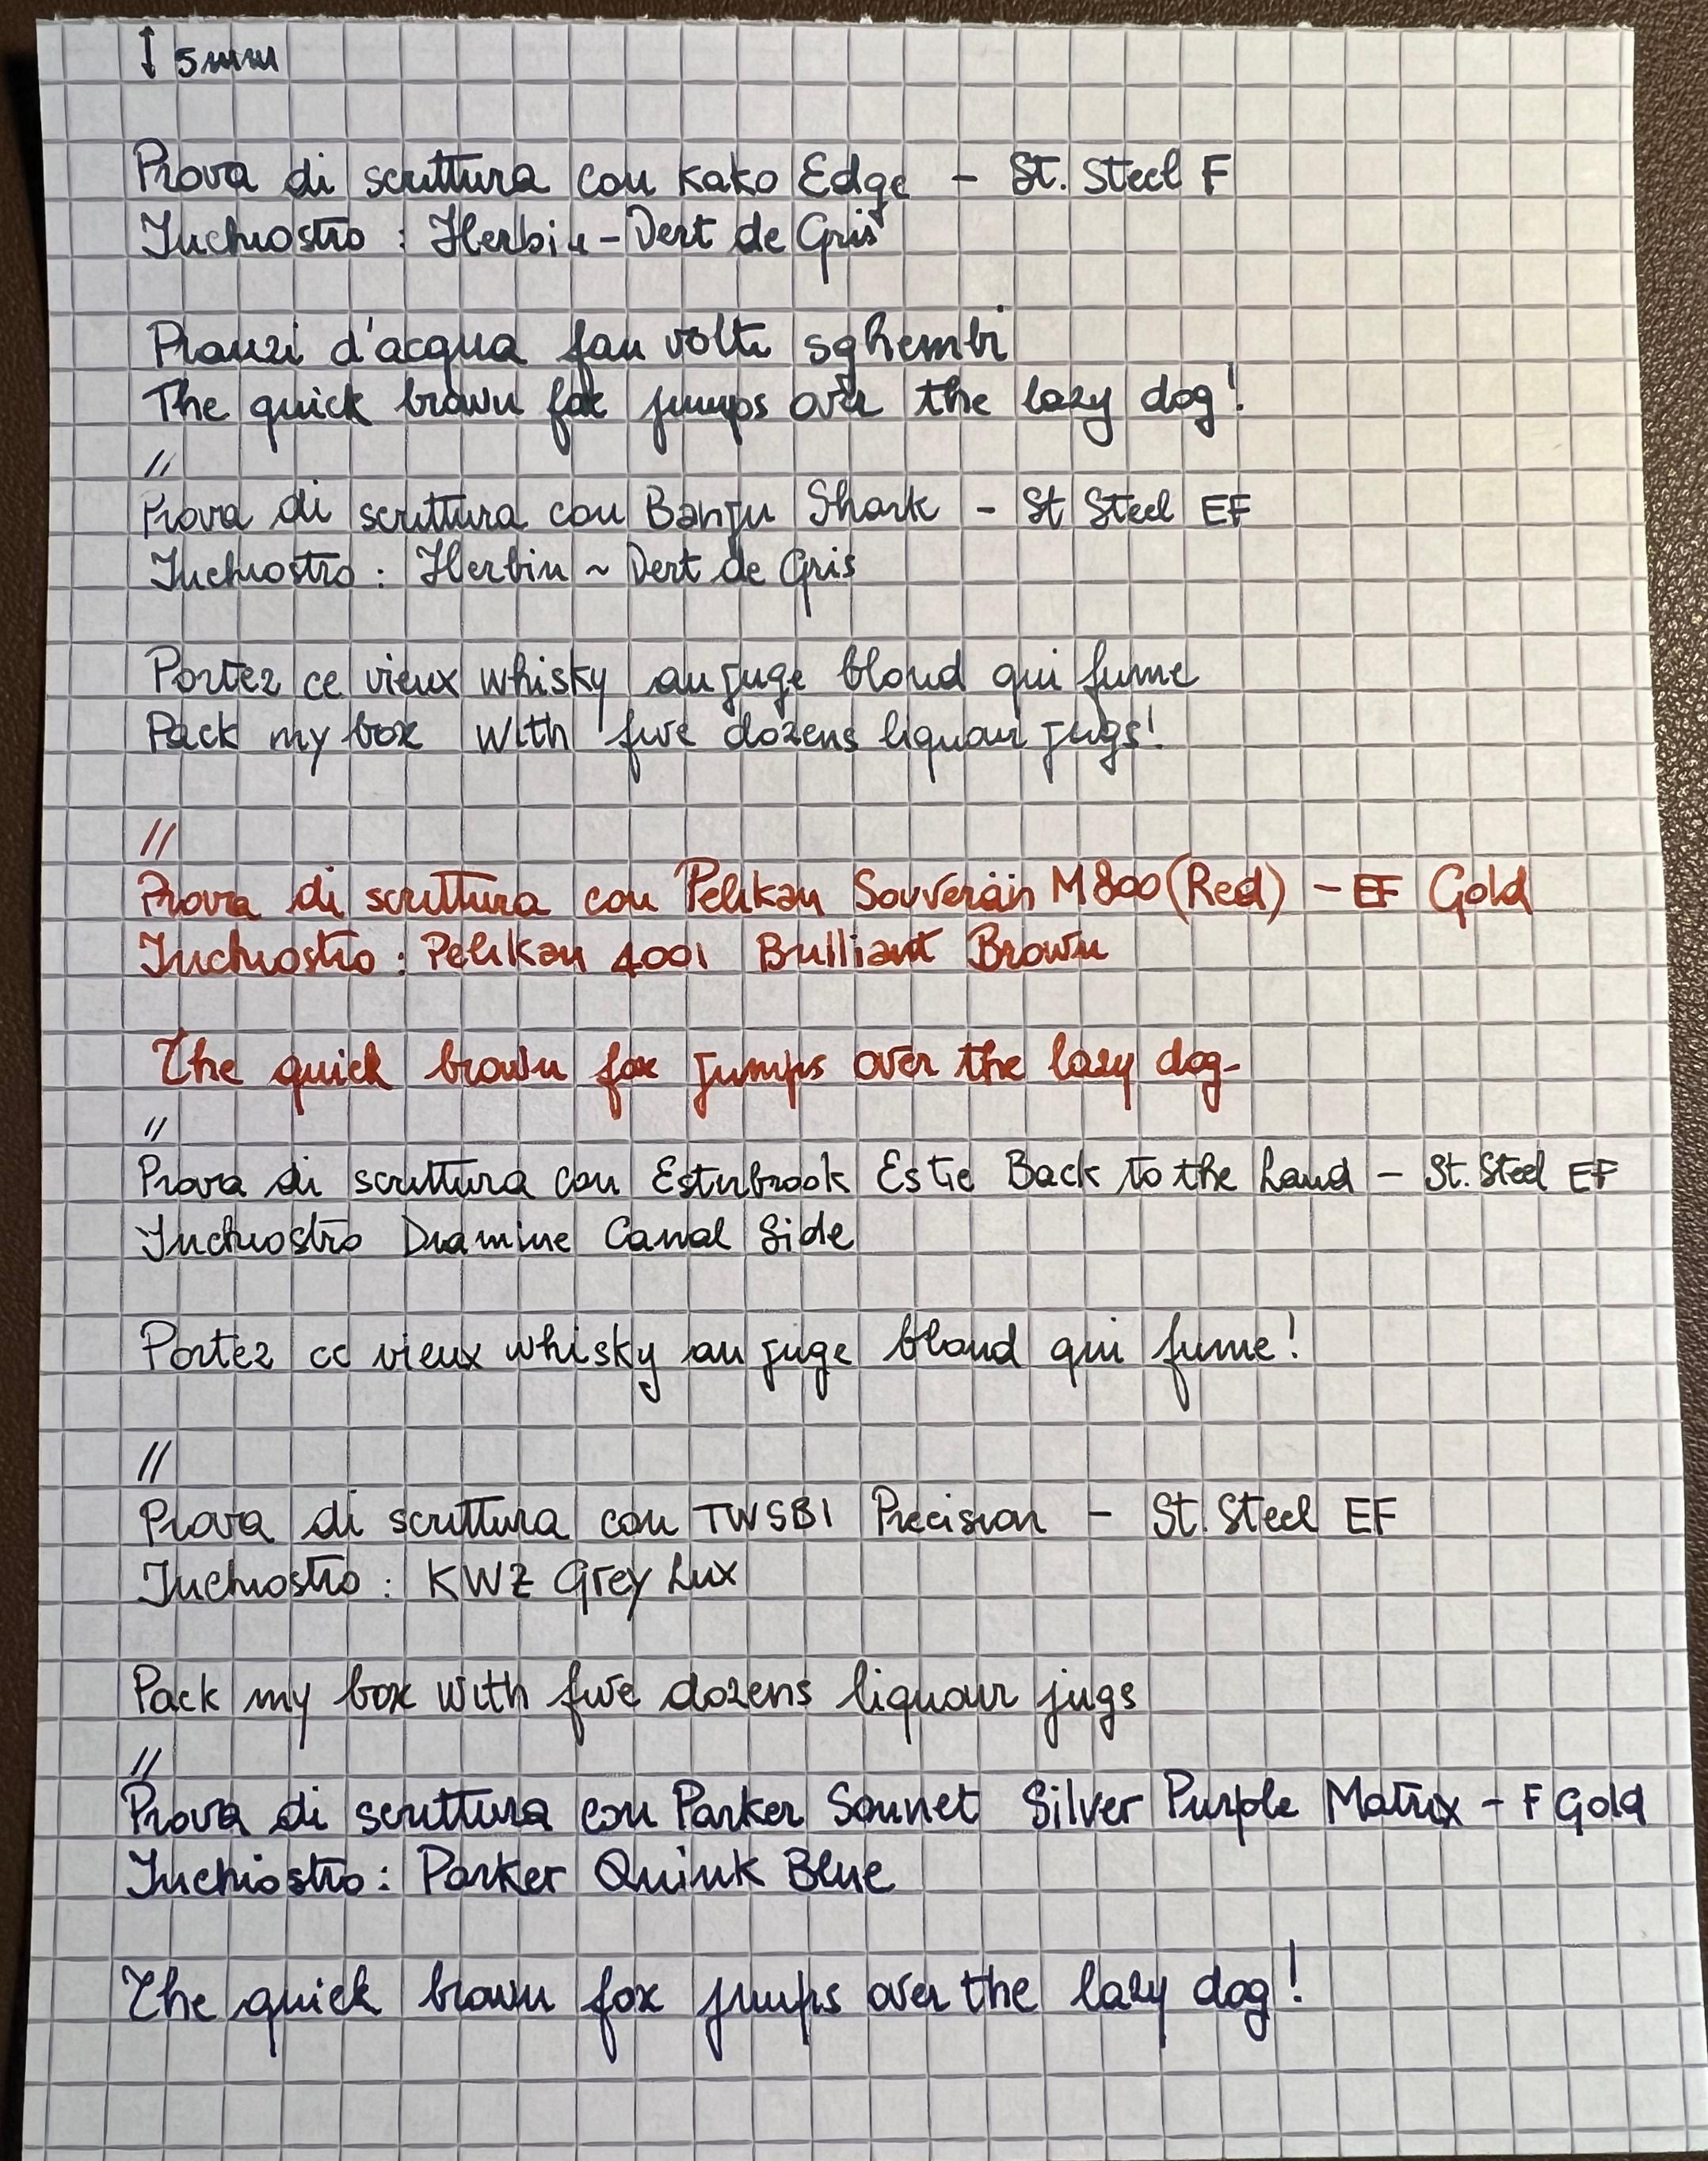 5mm
Prova di scrittura con Kako Edge - St. Steel F
Inchiostro : Herbin - Vert de Gris
Pranzi d'acqua fan volti sghembi
The quick brown fox jumps over the lazy dog!
//
Prova di scrittura con Banju Shark - St Steel EF
Inchiostro : Herbin ~ Vert de Gris
Portez ce vieux whisky au juge blond qui fume
Pack my box with five dozens liquour jugs!
//
Prova di scrittura con Pelikan Souverän M800 (Red) - EF Gold
Inchiostro : Pelikan 4001 Brilliant Brown
The quick brown fox jumps over the lazy dog-
//
Prova di scrittura con Esterbrook Estie Back to the Land - St. Steel EF
Inchiostro Diamine Canal Side
Portez ce vieux whisky au juge blond qui fume!
//
Prova di scrittura con TWSBI Precision - St. Steel EF
Inchiostro : KWZ Grey Lux
Pack my box with five dozens liquour jugs
//
Prova di scrittura con Parker Sonnet Silver Purple Matrix - F Gold
Inchiostro : Parker Quink Blue
The quick brown fox jumps over the lazy dog!